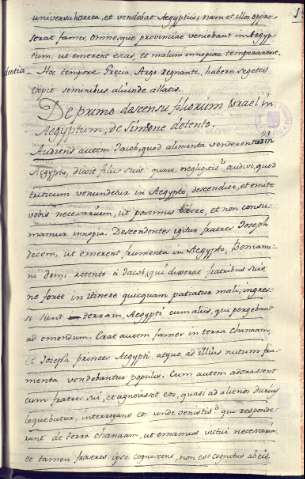 universa horrea, et vendebat Aegyptiis, nam et illos oppre-
serat fames, omnesque provinciae veniebant in Aegyp-
tum, ut emerent escas, et malum inopiae temperarent.
Hoc tempore Grecia, Argo regnante, habere segetes
cepit seminibus aliunde allatis.
De primo dascensu filiorum Israel in
Aegyptum, de Simone detento.
Audiens autem Jacob, quod alimenta venderentur in
Aegypto, dixit filiis suis quare negligitis? audivi, quod
triticum venundetur in Aegypto descendite, et emite
nobis necessarium, ut possimus vivere, et non consu-
mamur inopia. Descendentes igitur fratres Joseph
decem, ut emerent frumenta in Aegypto, Beniami-
no domi retento à Jacob, qui dixerat fratribus suis
ne forte in itinere quicquam patiatur mali, ingres-
si sunt terram Aegypti cum aliis, qui pergebant
ad emendum. Erat autem fames in terra Chanaam,
et Joseph princeps Aegypti atque ad illius nutum fru-
menta vendebantur populis. Cum autem adorassent
eum fratres sui, et agnovisset eos, quasi ad alienos durius
loquebatur, interrogans eos unde venistis? qui responde-
runt de terra Chanaam, ut emamus victui necessaria
et tamen fratres ipse cognoscens, non est cognitus ab eis.